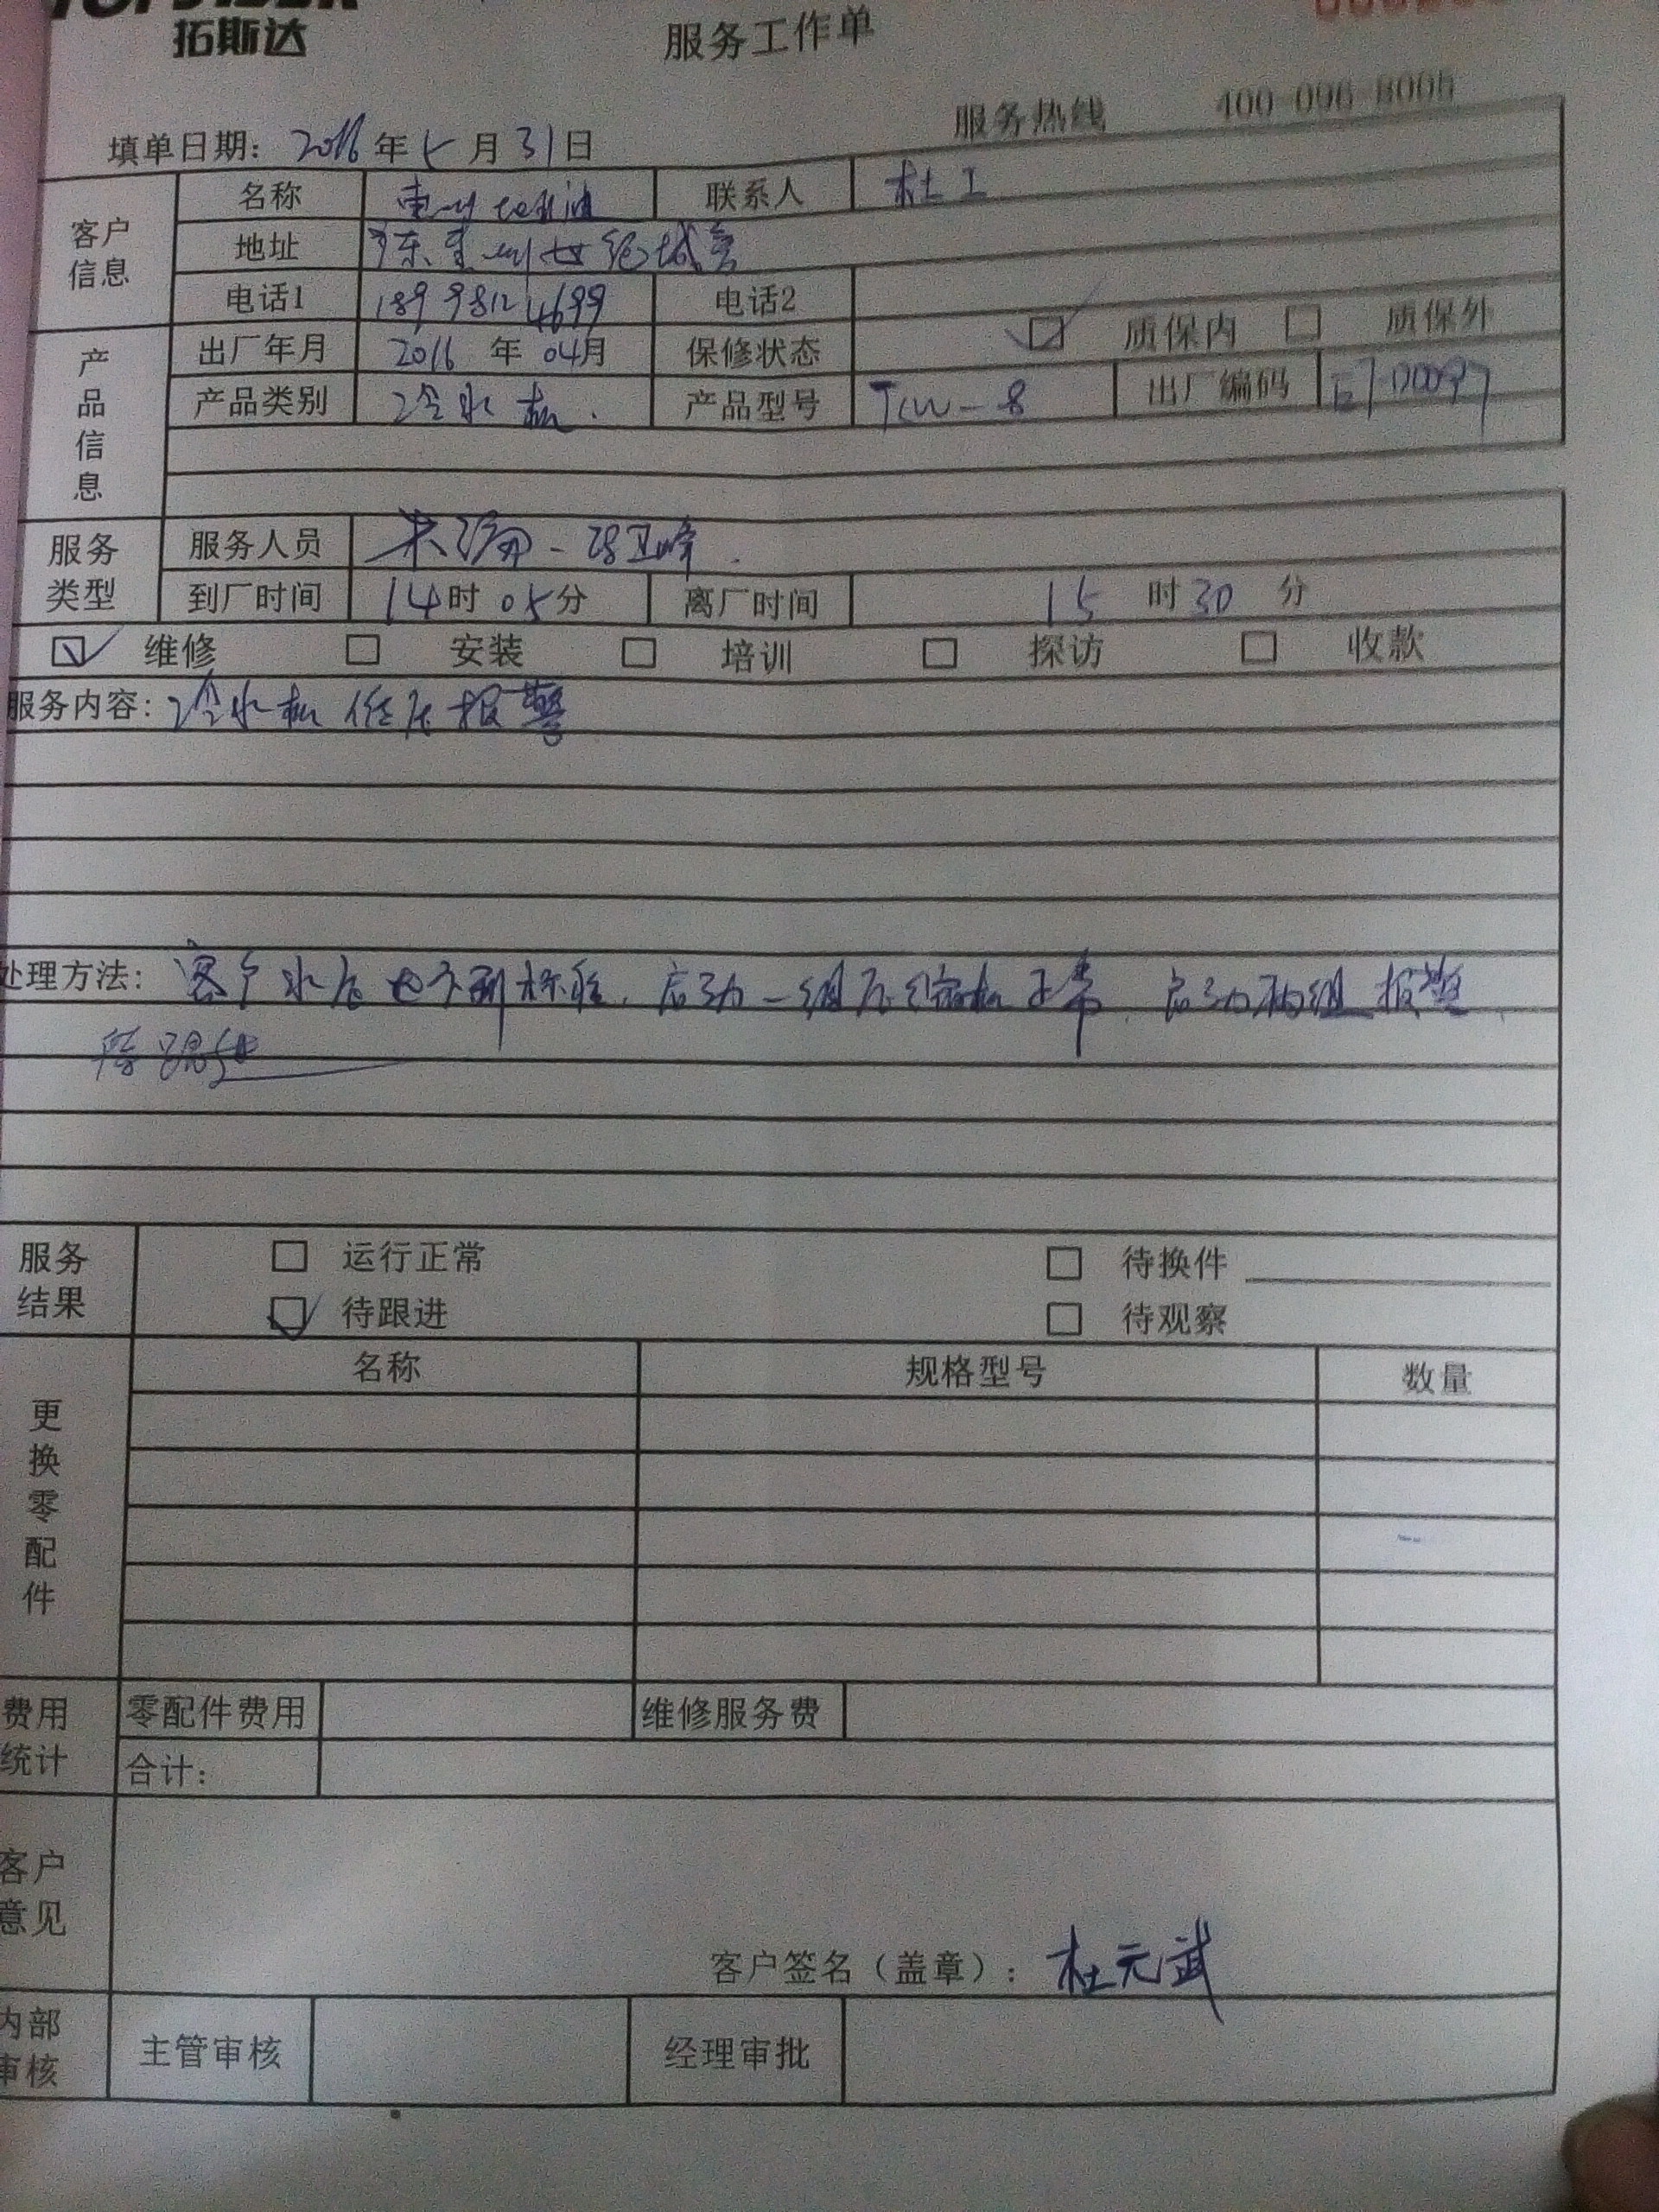 拓斯达
服务工作单
服务热线 400-096-8005
填单日期: 2016年5月31日
客户信息 名称 联系人 杜工
地址
电话1 189 9812 4699 电话2
产品信息 出厂年月 2016年04月 保修状态 质保内 质保外
产品类别 冷水机. 产品型号 TCW-8 出厂编码
服务类型 服务人员
到厂时间 14时05分 离厂时间 15时30分
维修 安装 培训 探访 收款
服务内容: 冷水机低压报警
处理方法: 客户水压 启动一组压缩机正常, 启动两组报警
待跟进
服务结果 运行正常 待换件
待跟进 待观察
更换零配件 名称 规格型号 数量
费用统计 零配件费用 维修服务费
合计:
客户意见
客户签名(盖章): 杜元武
内部审核 主管审核 经理审批